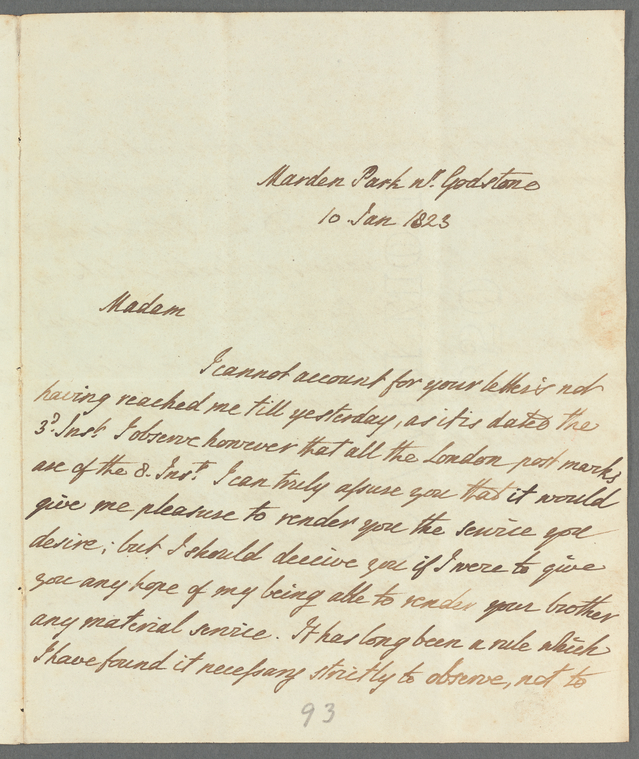 Marden Park nr. Godstone
10 Jan 1823
Madam
I cannot account for your letter's not
having reached me till yesterday, as it is dated the
3d. Inst. I observe however that all the London post marks
are of the 8. Inst. I can truly assure you that it would
give me pleasure to render you the service you
desire; but I should deceive you if I were to give
you any hope of my being able to render your brother
any material service. It has long been a rule which
I have found it necessary strictly to observe, not to
93